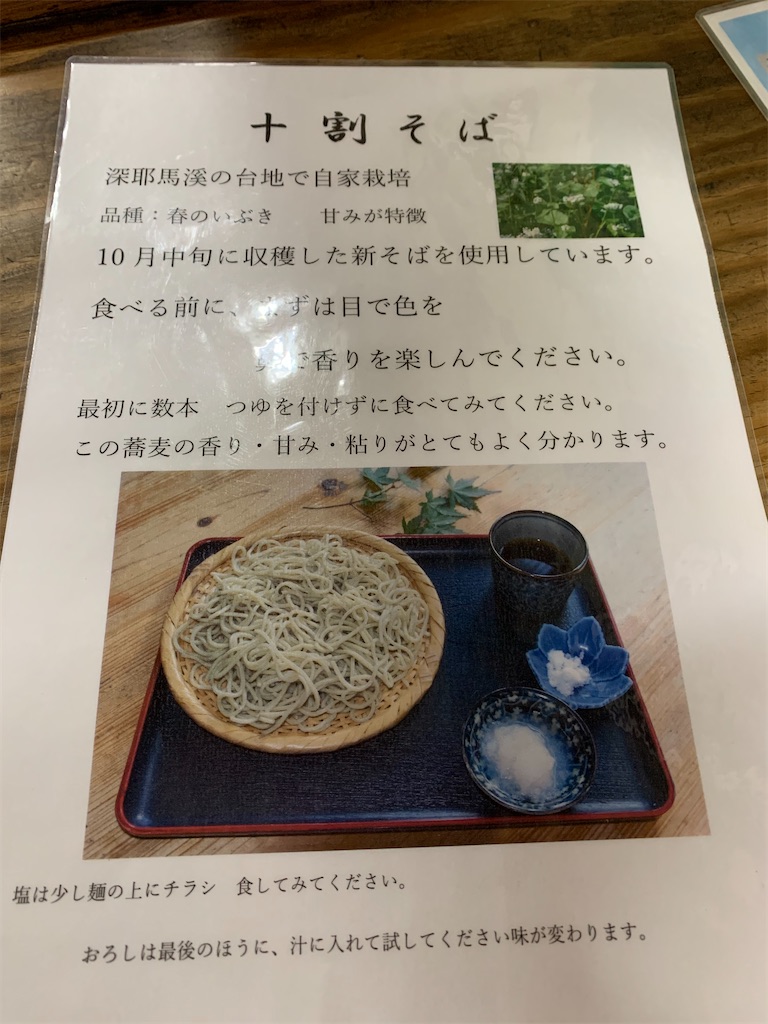 十割そば
深耶馬溪の台地で自家栽培
品種：春のいぶき　　甘みが特徴
10月中旬に収穫した新そばを使用しています。
食べる前に、まずは目で色を
で香りを楽しんでください。
最初に数本　つゆを付けずに食べてみてください。
この蕎麦の香り・甘み・粘りがとてもよく分かります。
塩は少し麺の上にチラシ　食してみてください。
おろしは最後のほうに、汁に入れて試してください味が変わります。